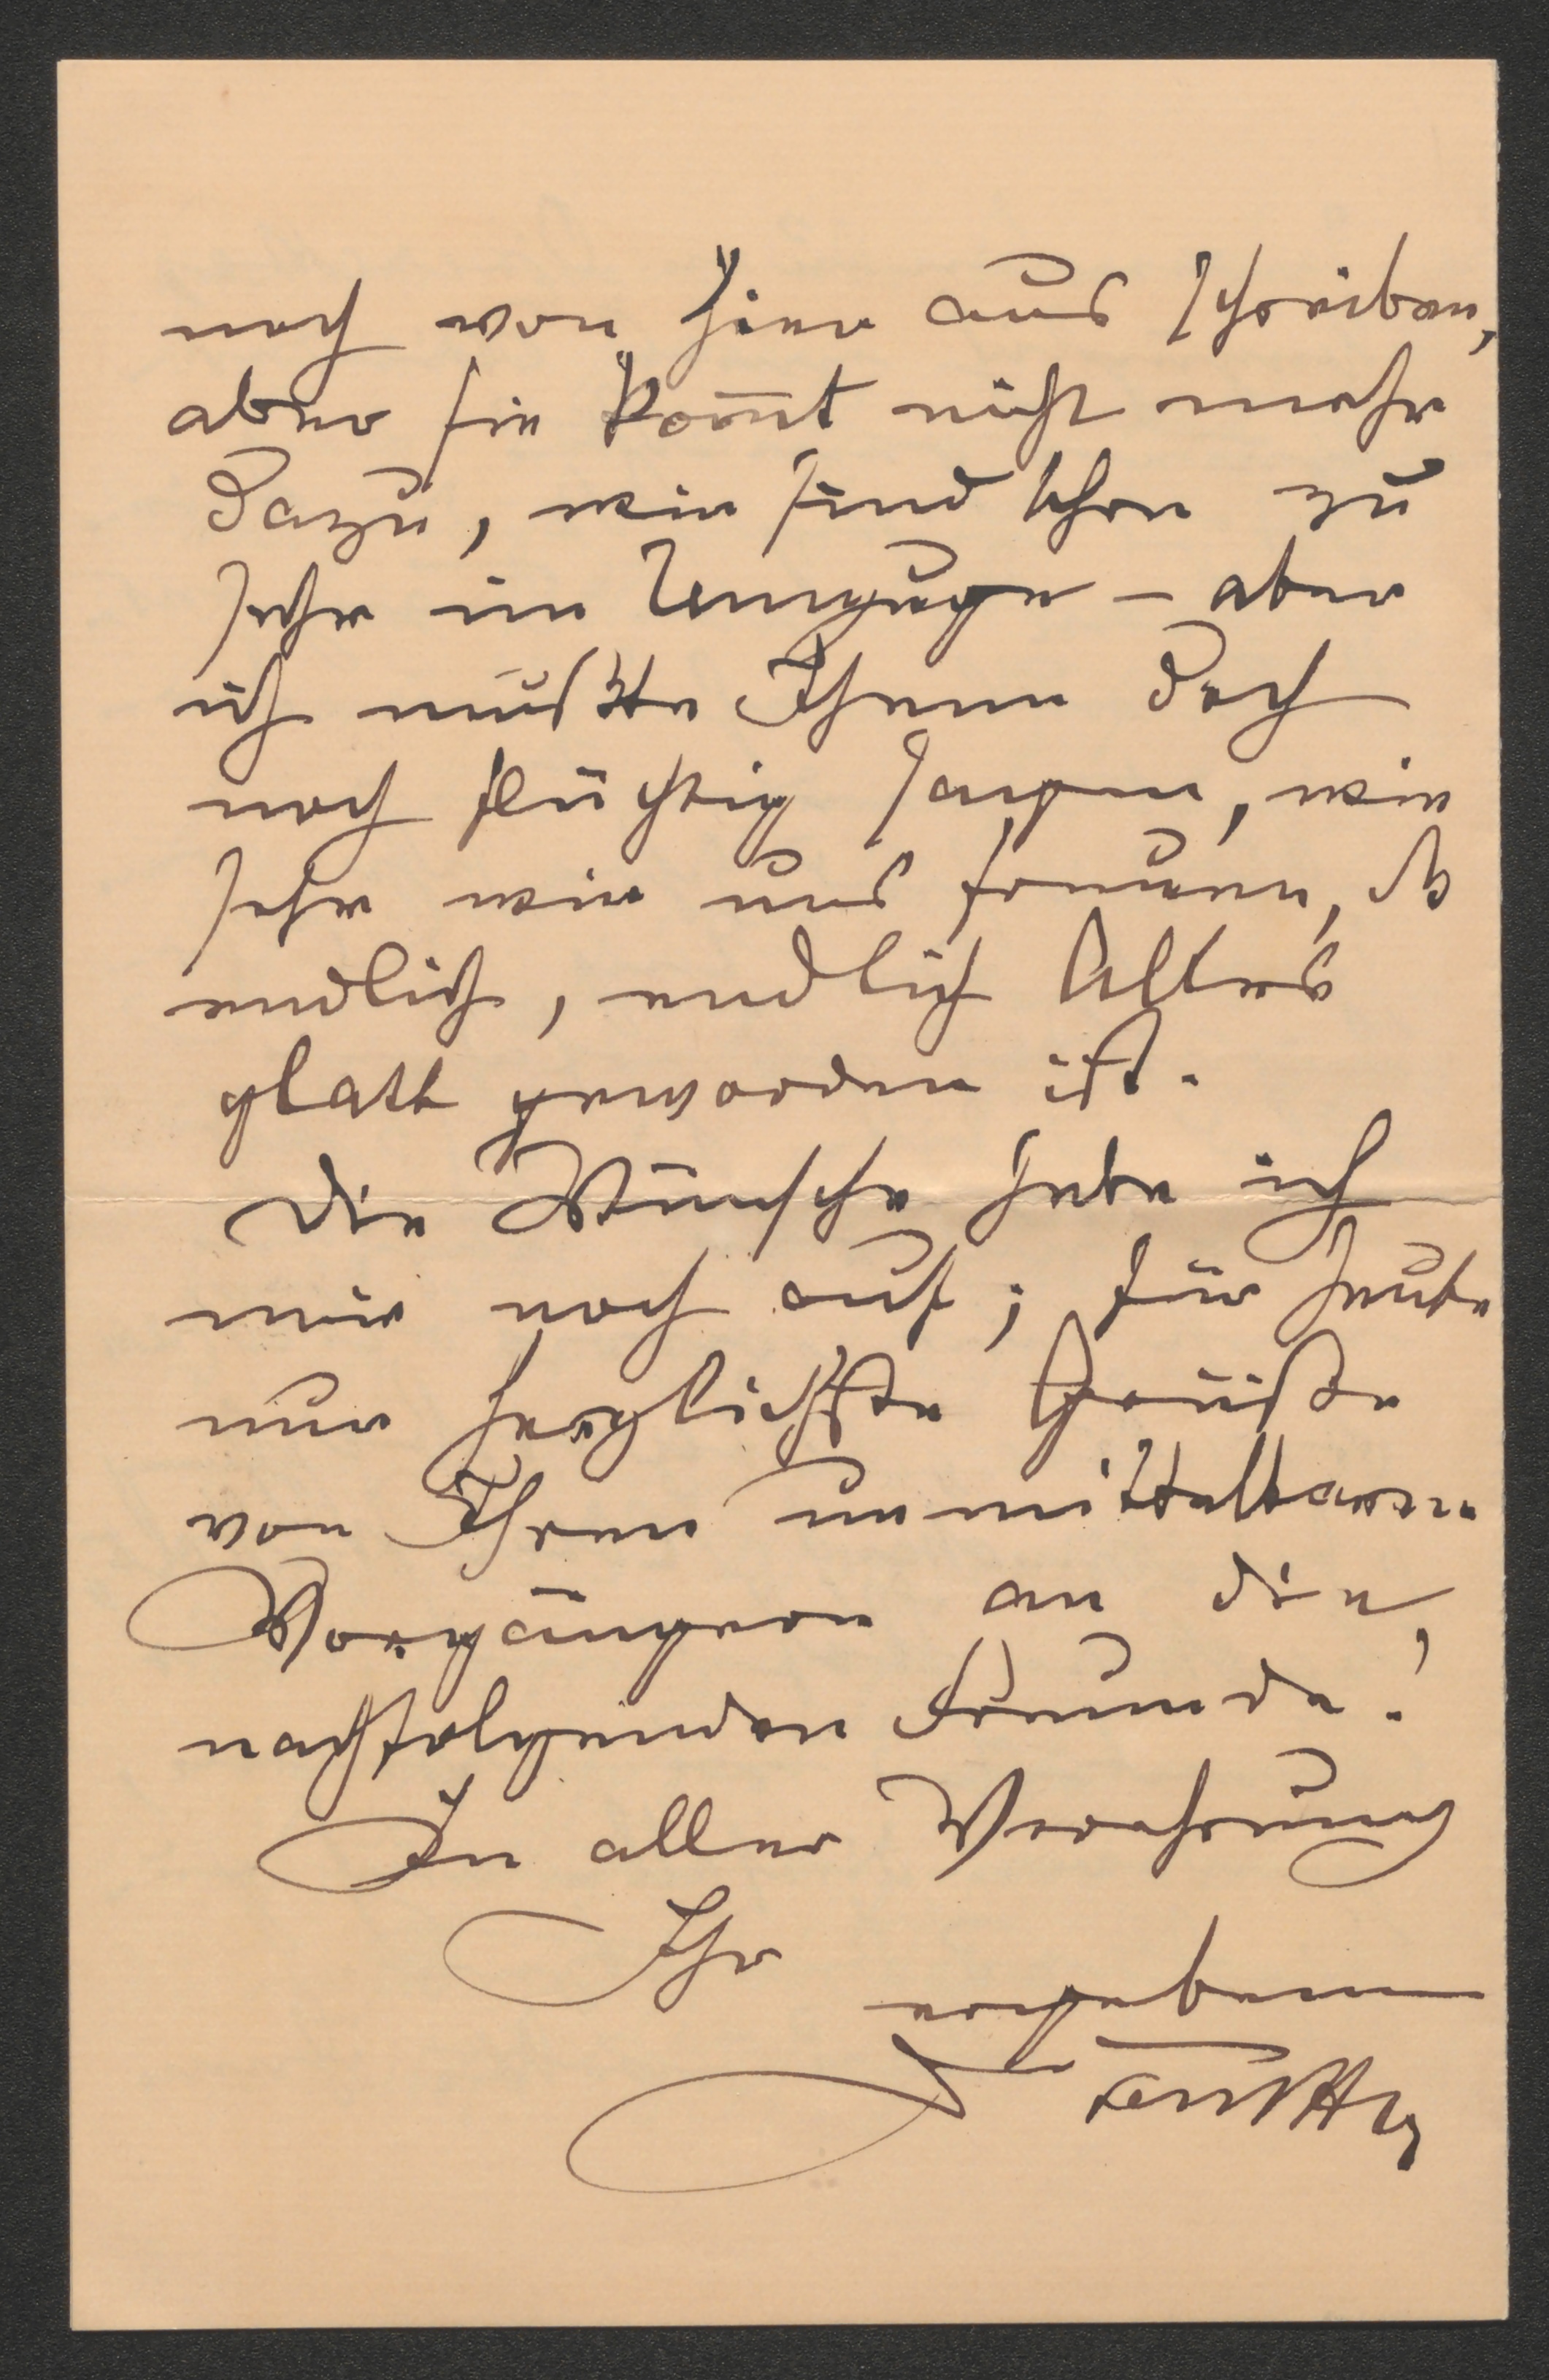 noch von hier aus schreiben,
aber sie kom̄t nicht mehr
dazu, wir sind schon zu
sehr im Umzuge – aber
ich mußte Ihnen doch
noch flüchtig sagen, wie
sehr wir uns freuen, dß
endlich, endlich Alles
glatt geworden ist.
Die Wünsche hebe ich
mir noch auf; für heute
nur herzlichste Grüße
von Ihren unmittelbaren
Vorgängern an die
nachfolgenden Freunde!
In aller Verehrung
Ihr
ergebener